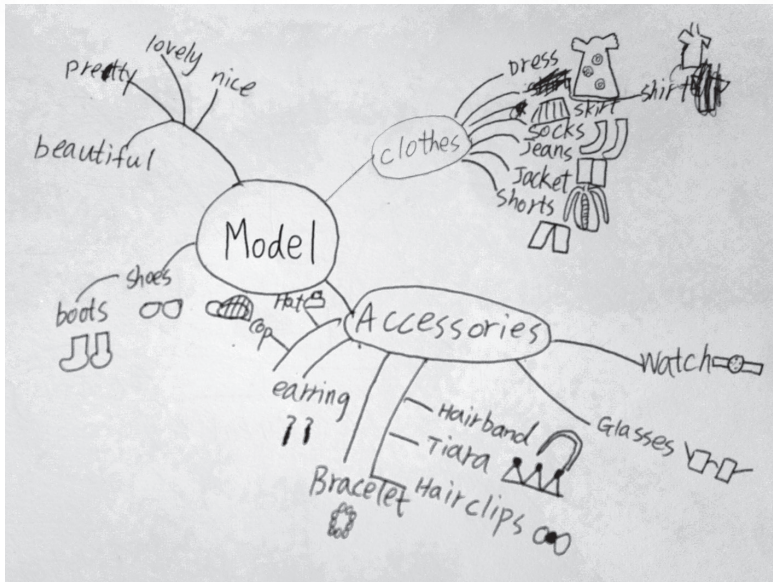 lovely
pretty
nice
beautiful
Model
clothes
Dress
skirt
shirt
socks
Jeans
Jacket
Shorts
shoes
boots
Accessories
Hat
cap
earring
Bracelet
Hairband
Tiara
Hairclips
Glasses
Watch